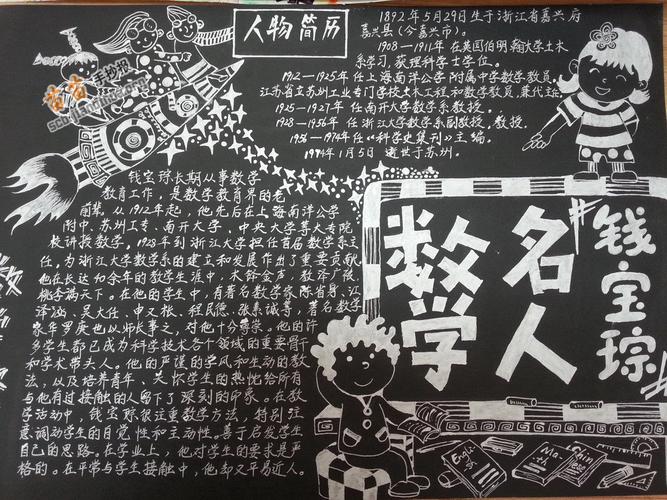 人物简历
1892年5月29日生于浙江省嘉兴府
嘉兴县(今嘉兴市)。
1908—1911年在英国伯明翰大学土木
系学习,获理科学士学位。
1912—1925年任上海南洋公学附属中学数学教员,
江苏省立苏州工业专门学校土木工程和数学教员,兼代主任
1925—1927年任南开大学数学系教授。
1928—1956年任浙江大学数学系副教授、教授。
1956—1974年任《科学史集刊》主编。
1974年1月5日逝世于苏州。
苗苗手抄报
钱宝琮长期从事数学
教育工作,是数学教育界的老
前辈。从1912年起,他先后在上海南洋公学
附中、苏州工专、南开大学、中央大学等大专院
校讲授数学。1928年到浙江大学担任首届数学系主
任,为浙江大学数学系的建立和发展作出了重要贡献
他在长达40余年的数学生涯中,木铎金声,教泽广被,
桃李满天下。在他的学生中,有著名数学家陈省身、江
泽涵、吴大任、申又枨、程民德、张素诚等,著名数学
家华罗庚也以师长事之,对他十分尊荣。他的许
多学生都已成为科学技术各个领域的重要骨干
和学术带头人。他的严谨的学风和生动的教
法,以及培养青年、关怀学生的热忱给所有
与他有过接触的人留下了深刻的印象。在教
学活动中,钱宝琮很注重数学方法,特别注
意调动学生的自觉性和主动性。善于启发学生
自己的思路。在学业上,他对学生的要求是严
格的。在平常与学生接触中,他却又平易近人。
数学
名人
钱宝琮
English
Ma-th
Chinese